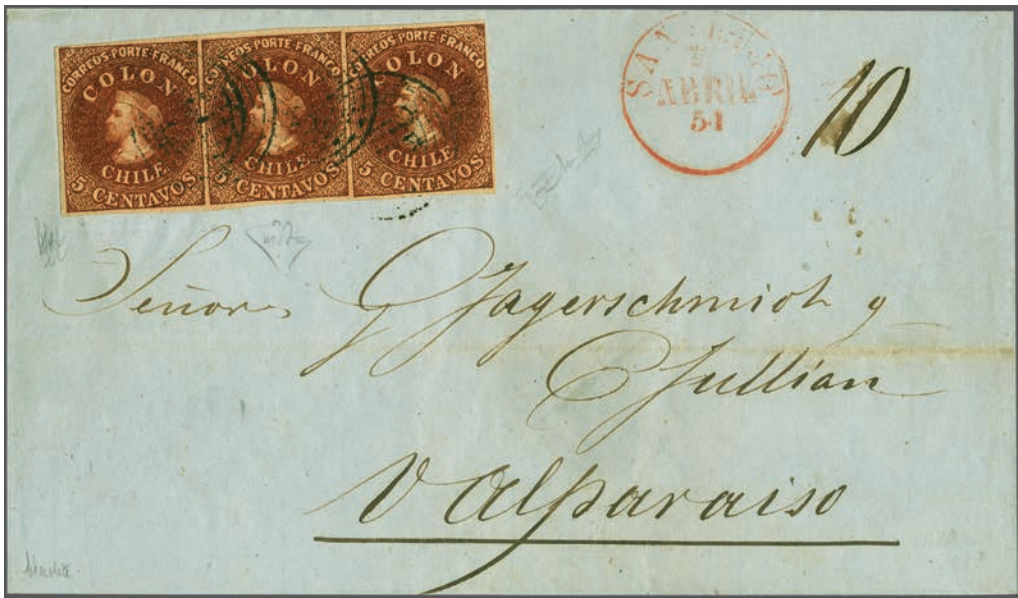 CORREOS PORTE FRANCO
COLON
CHILE
5 CENTAVOS
CORREOS PORTE FRANCO
COLON
CHILE
5 CENTAVOS
CORREOS PORTE FRANCO
COLON
CHILE
5 CENTAVOS
SANTIAGO
ABRIL
54
10
Señores Jagerschmidt y
Jullian
Valparaiso